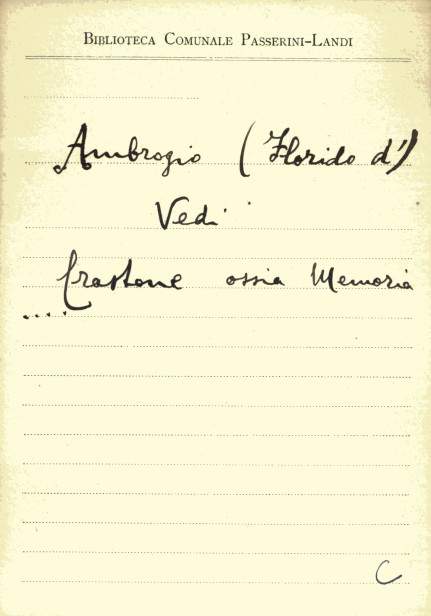 BIBLIOTECA COMUNALE PASSERINI-LANDI
Ambrogio (Florido d')
Vedi
Crastone ossia Memoria
....
C